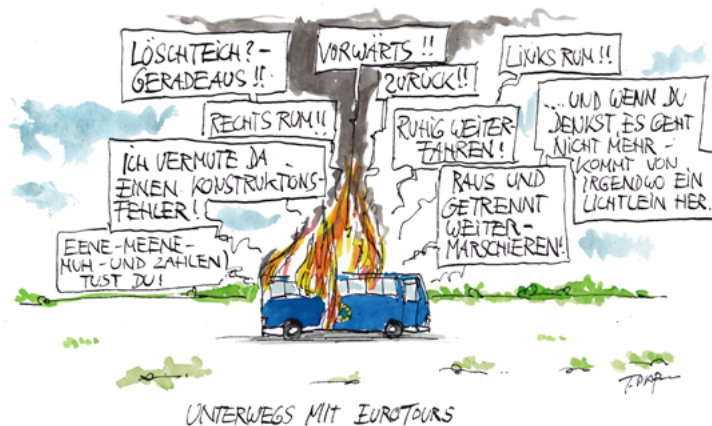 LÖSCHTEICH?-
GERADEAUS!!
VORWÄRTS!!
ZURÜCK!!
LINKS RUM!!
RECHTS RUM!!
RUHIG WEITER-
FAHREN!
....UND WENN DU
DENKST, ES GEHT
NICHT MEHR -
KOMMT VON
IRGENDWO EIN
LICHTLEIN HER.
ICH VERMUTE DA
EINEN KONSTRUKTIONS-
FEHLER!
RAUS UND
GETRENNT
WEITER-
MARSCHIEREN!
EENE-MEENE-
MUH-UND ZAHLEN
TUST DU!
UNTERWEGS MIT EUROTOURS